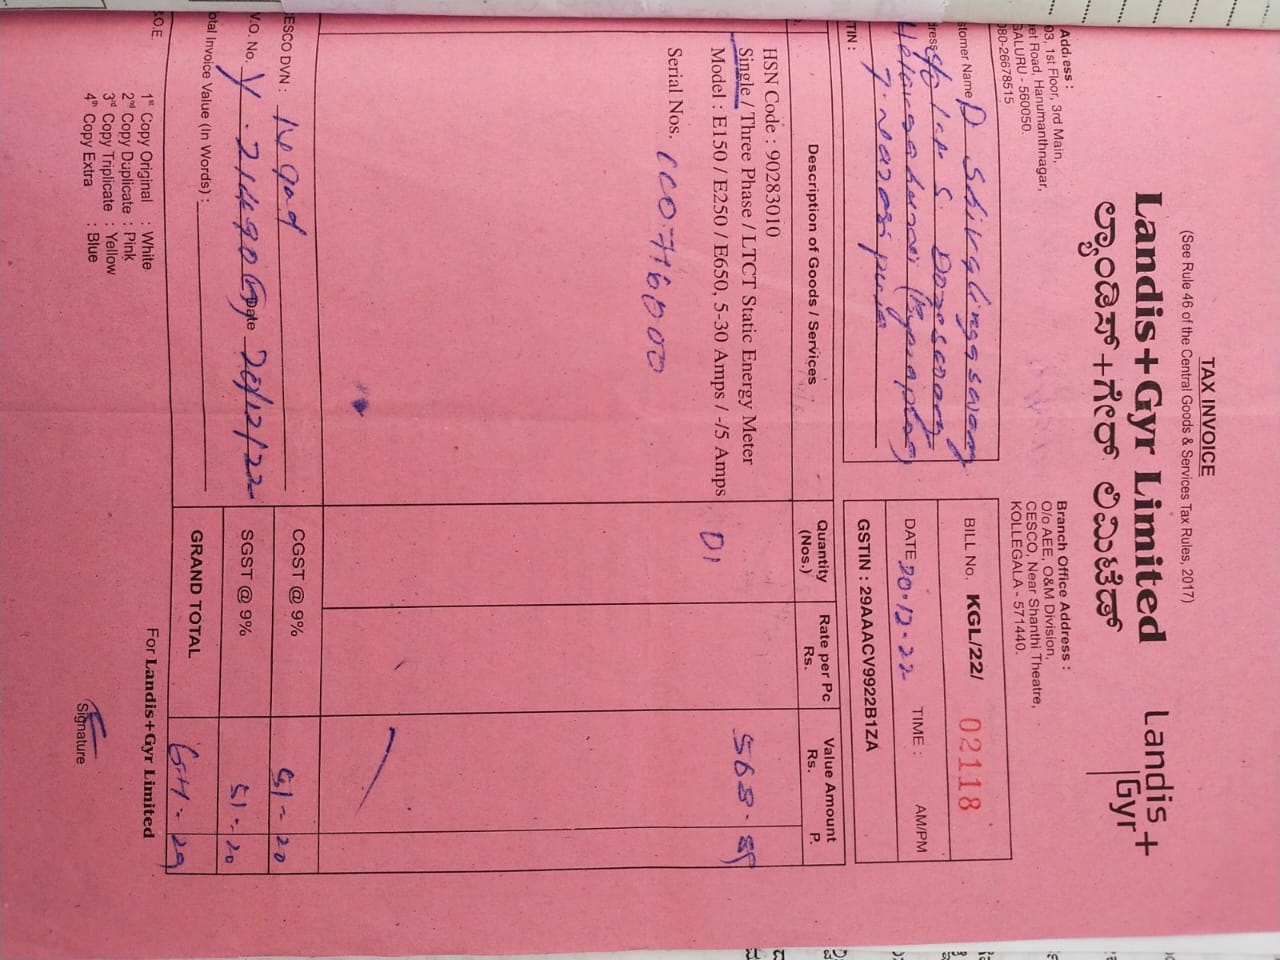 TAX INVOICE
(See Rule 46 of the Central Goods & Services Tax Rules, 2017)
Landis+Gyr Limited
Landis+
Gyr+
ಲ್ಯಾಂಡಿಸ್+ಗೇರ್ ಲಿಮಿಟೆಡ್
Address :
03, 1st Floor, 3rd Main,
Road, Hanumanthnagar,
GALURU - 560050.
080-26678515
Branch Office Address :
O/o AEE, O&M Division,
CESCO, Near Shanthi Theatre,
KOLLEGALA - 571440.
stomer Name D
S
TIN :
BILL No. KGL/22/ 02118
DATE 20.12.22 TIME : AM/PM
GSTIN : 29AAACV9922B1ZA
Description of Goods / Services
Quantity (Nos.)
Rate per Pc Rs.
Value Amount Rs. P.
HSN Code : 90283010
Single / Three Phase / LTCT Static Energy Meter
Model : E150 / E250 / E650, 5-30 Amps / -/5 Amps
01
568.
Serial Nos.
ESCO DVN :
CGST @ 9% 51-20
V.O. No. Date 20/12/22
SGST @ 9% 51-20
otal Invoice Value (In Words) :
GRAND TOTAL
.O.E.
1st Copy Original : White
2nd Copy Duplicate : Pink
3rd Copy Triplicate : Yellow
4th Copy Extra : Blue
For Landis+Gyr Limited
Signature